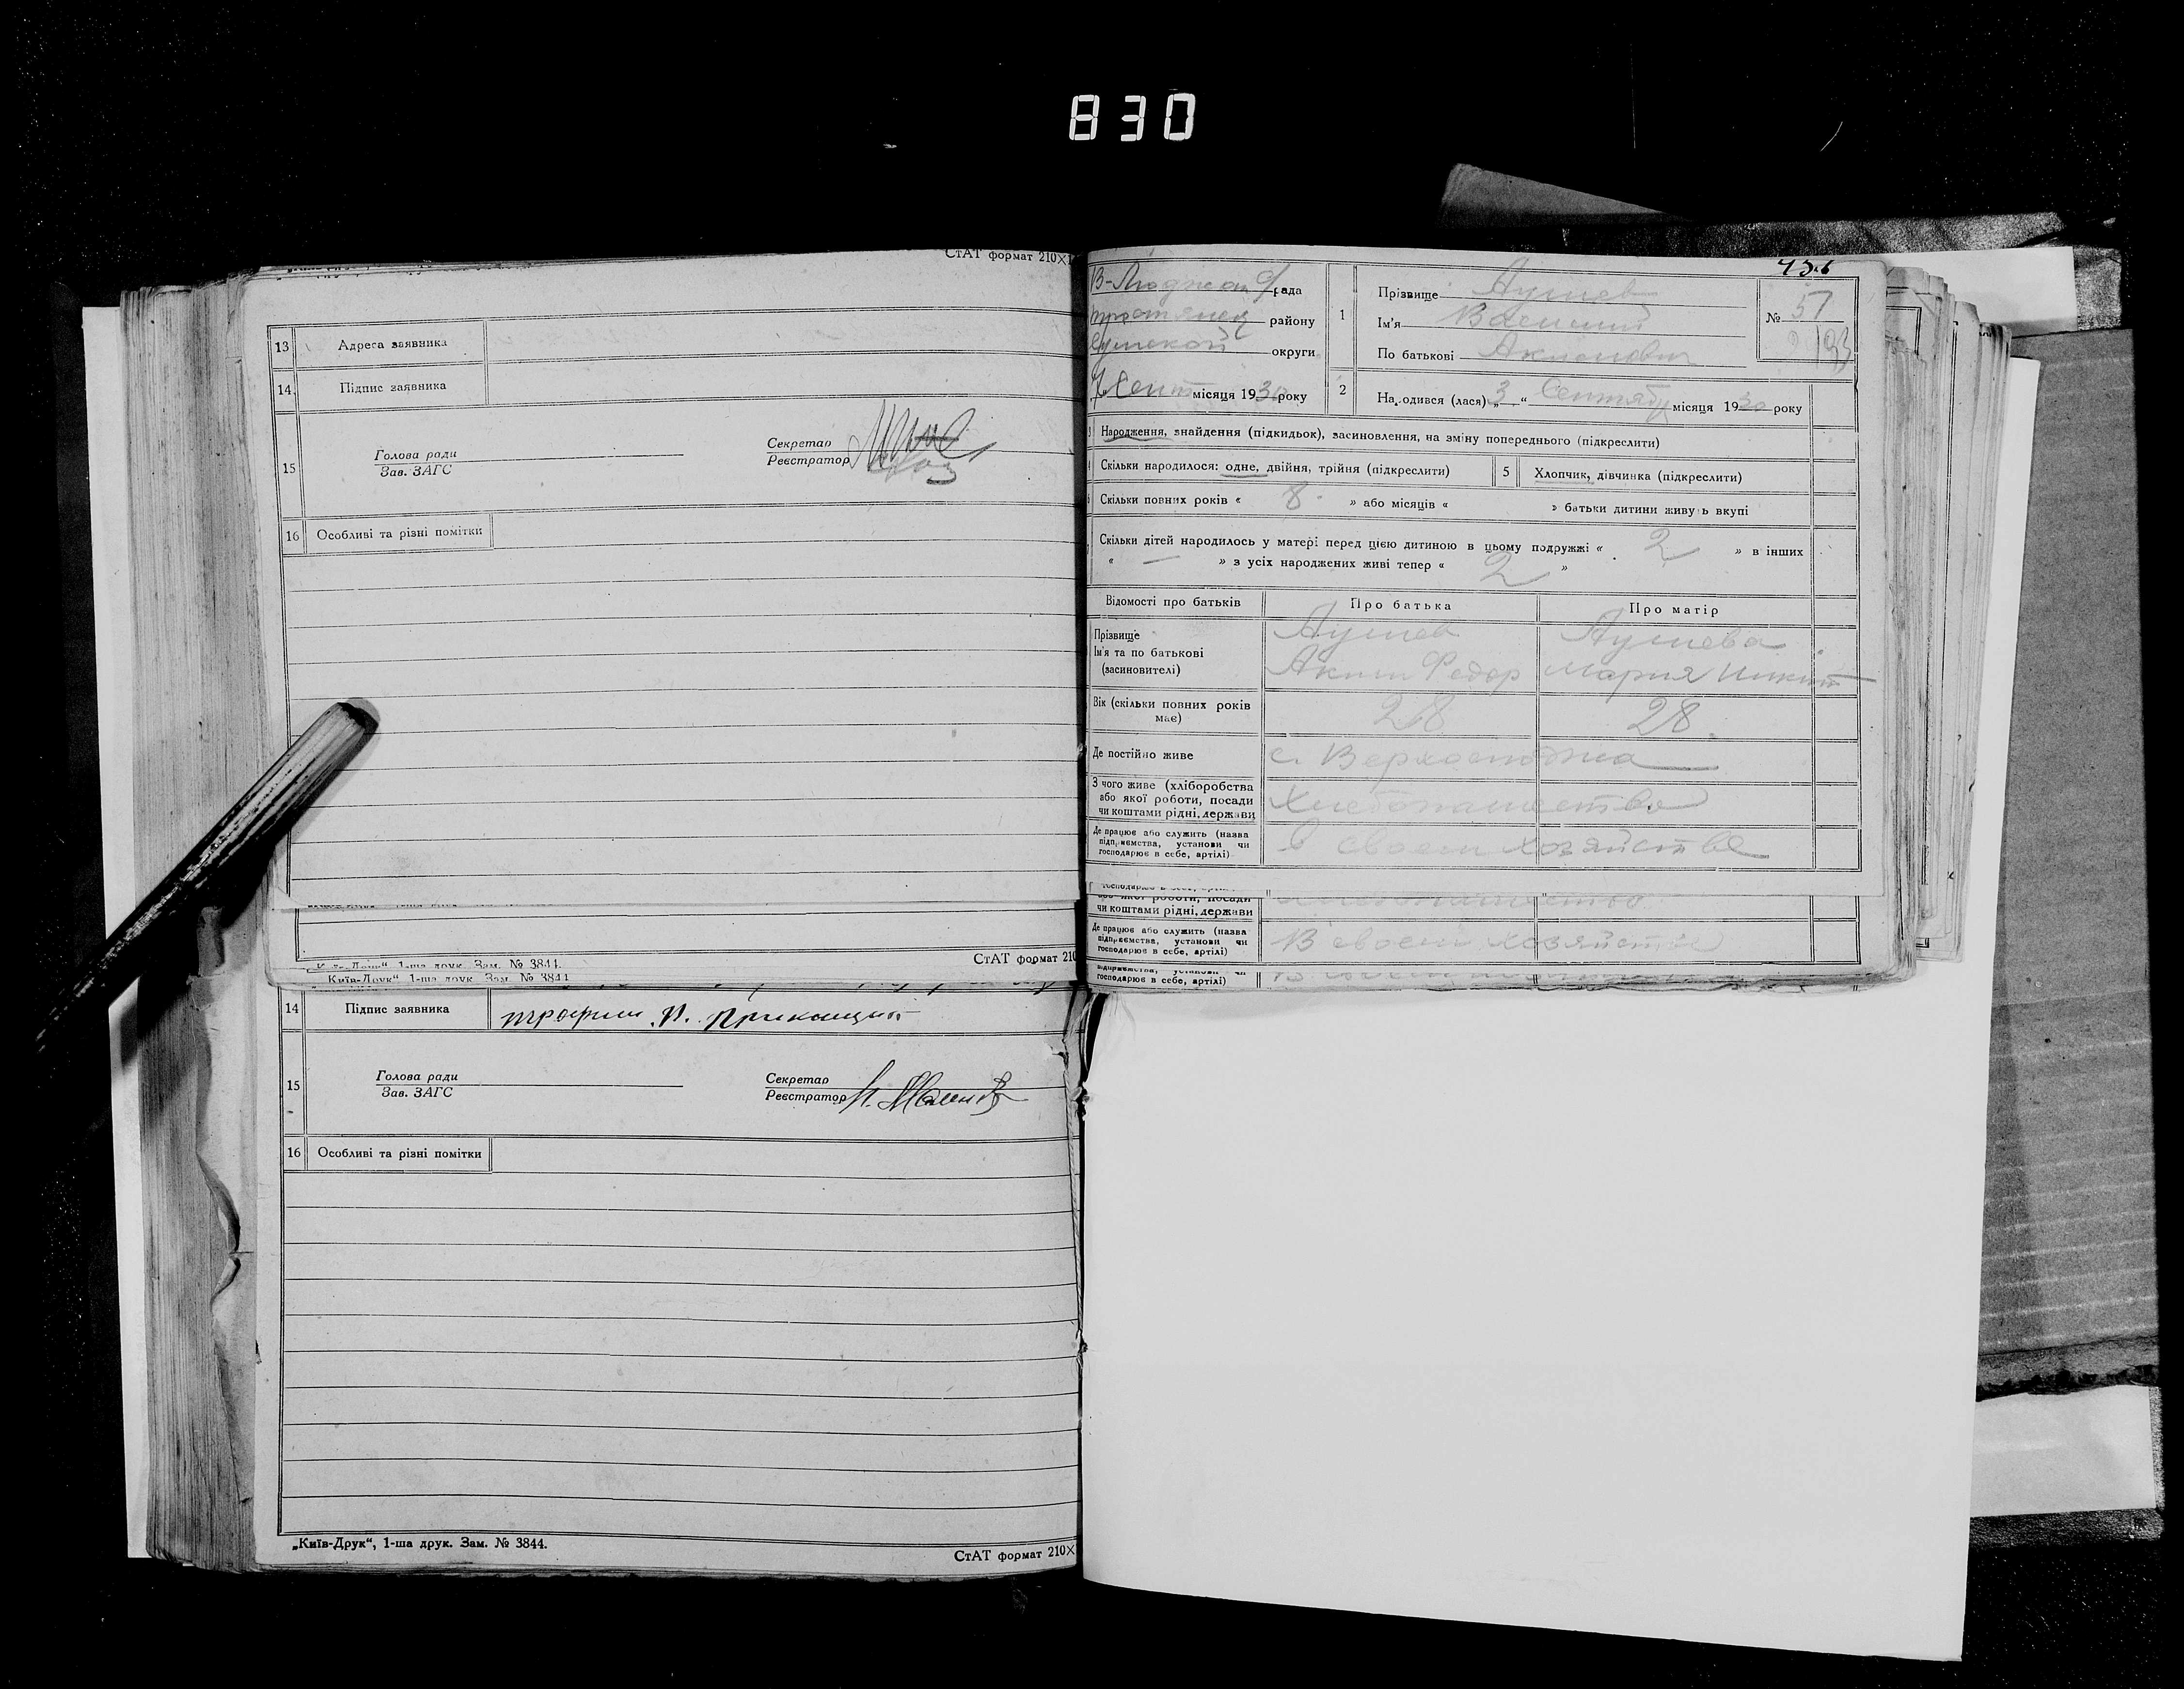 830
СтАТ формат 210×1
13 Адреса заявника
14. Підпис заявника
15 Голова ради
Зав. ЗАГС
Секретар
Реєстратор
16 Особливі та різні помітки
СтАТ формат 210
„Київ-Друк“, 1-ша друк. Зам. № 3844.
„Київ-Друк“, 1-ша друк. Зам. № 3844
14 Підпис заявника
15 Голова ради
Зав. ЗАГС
Секретар
Реєстратор
16 Особливі та різні помітки
„Київ-Друк“, 1-ша друк. Зам. № 3844.
СтАТ формат 210×
рада
району
Сумской округи
Сент місяця 1930 року
1 Прізвище
Ім'я Василий
По батькові Акимович
№ 57
193
2 Народився (лася) „3“ Сентября місяця 1930 року
Народження, знайдення (підкидьок), засиновлення, на зміну попереднього (підкреслити)
Скільки народилося: одне, двійня, трійня (підкреслити)
5 Хлопчик, дівчинка (підкреслити)
Скільки повних років « 8 » або місяців « » батьки дитини живуть вкупі
Скільки дітей народилось у матері перед цією дитиною в цьому подружжі « 2 » в інших
« — » з усіх народжених живі тепер « 2 »
Відомості про батьків Про батька Про матір
Прізвище
Ім'я та по батькові
(засиновителі)
Аким Федор Мария Никит
Вік (скільки повних років має) 28 28
Де постійно живе с.
З чого живе (хліборобства
або якої роботи, посади
чи коштами рідні, держави
Хлебопашество
Де працює або служить (назва
підприємства, установи чи
господарює в себе, артілі)
в своем хозяйстве
чи коштами рідні, держави
Де працює або служить (назва
підприємства, установи чи
господарює в себе, артілі)
В своем хозяйстве
господарює в себе, артілі)